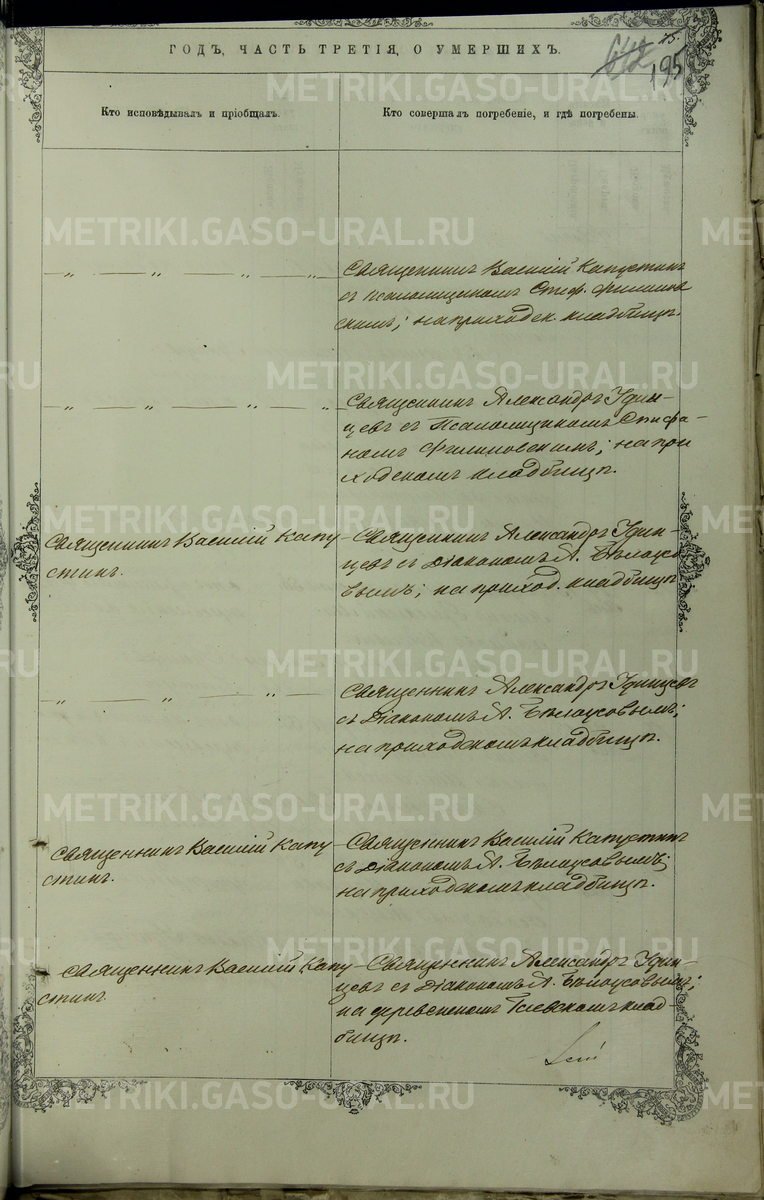 ГОДЪ, ЧАСТЬ ТРЕТІЯ, О УМЕРШИХЪ.
195
Кто исповѣдывалъ и пріобщалъ.
Кто совершалъ погребеніе, и гдѣ погребены.
METRIKI.GASO-URAL.RU
„ „ „ „
Священникъ Василій Капустинъ
съ псаломщикомъ Стеф. Филинов
скимъ; на приходск. кладбищѣ.
„ „ „ „
Священникъ Александръ Удин-
цевъ съ Псаломщикомъ Стефа-
номъ Филиновскимъ; на при
ходскомъ кладбищѣ.
Священникъ Василій Капу
стинъ.
Священникъ Александръ Удин-
цевъ съ Діакономъ А. Бѣлоусо
вымъ; на приход. кладбищѣ
„ „ „
Священникъ Александръ Удинцевъ
съ Діакономъ А. Бѣлоусовымъ;
на приходскомъ кладбищѣ.
Священникъ Василій Капу
стинъ.
Священникъ Василій Капустинъ
съ Діакономъ А. Бѣлоусовымъ;
на приходскомъ кладбищѣ.
Священникъ Василій Капу
стинъ
Священникъ Александръ Удин-
цевъ съ Діакономъ А. Бѣлоусовымъ;
на деревенскомъ клад-
бищѣ.